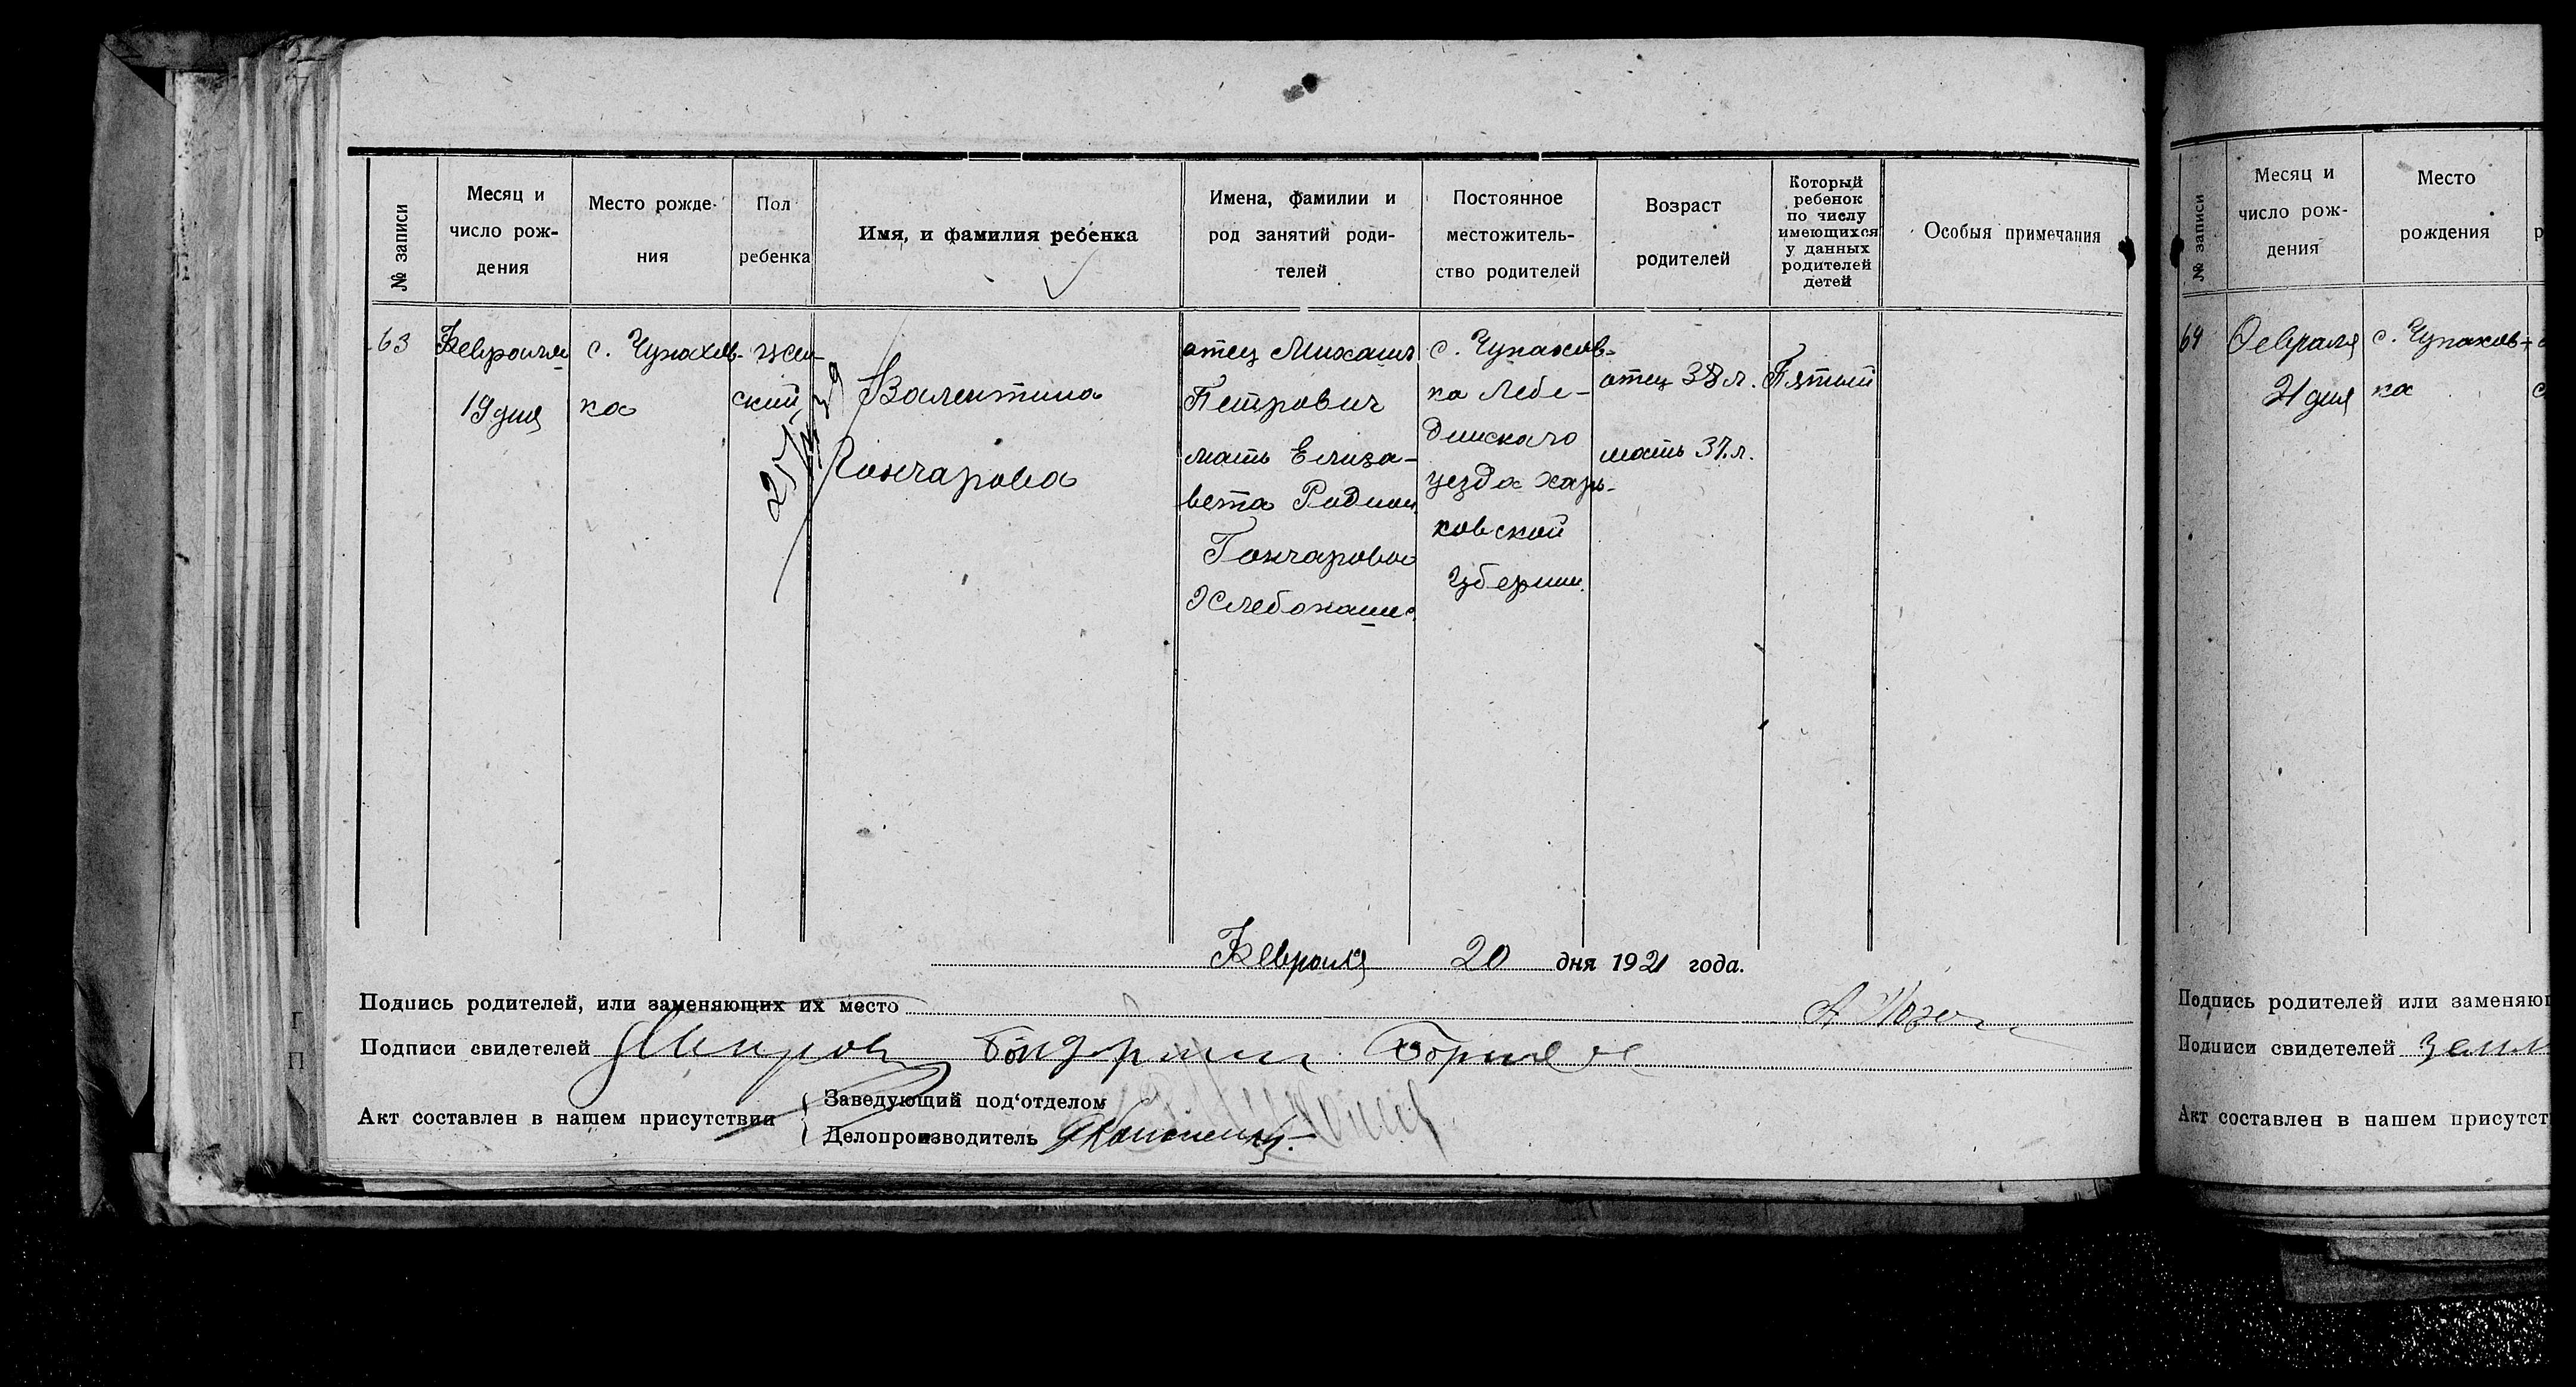 № записи
Месяц и
число рож-
дения
Место рожде-
ния
Пол
ребенка
Имя, и фамилия ребенка
Имена, фамилии и
род занятий роди-
телей
Постоянное
местожитель-
ство родителей
Возраст
родителей
Который
ребенок
по числу
имеющихся
у данных
родителей
детей
Особыя примечания
63
Февраля
19 дня
с. Чупахов-
ка
жен-
ский
Валентина
Гончарова
отец Михаил
Петрович
мать Елиза-
вета Родион.
Гончарова
Хлебопаш.
с. Чупахов-
ка Лебе-
динского
уезда Харь-
ковской
Губернии.
отец 38 л.
мать 37 л.
Пятый
Февраля 20 дня 1921 года.
Подпись родителей, или заменяющих их место
Подписи свидетелей
Акт составлен в нашем присутствии
Заведующий под'отделом
Делопроизводитель
№ записи
Месяц и
число рож-
дения
Место
рождения
64
Февраля
21 дня
с. Чупахов-
ка
Подпись родителей или заменяющ
Подписи свидетелей
Акт составлен в нашем присутст